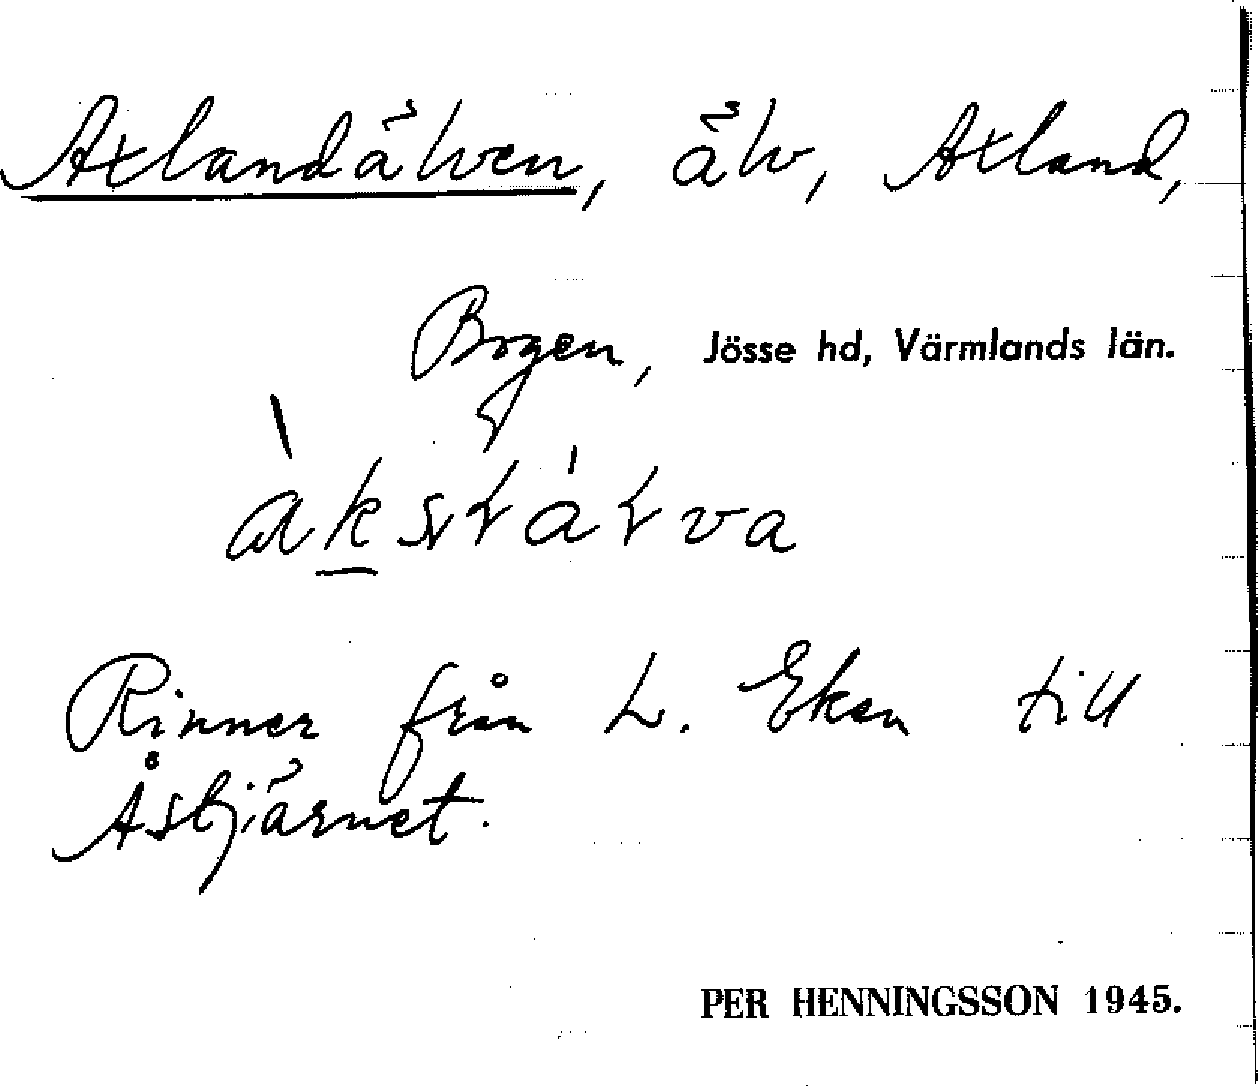 Axlandälven, älv, Axland,
Bogen, Jösse hd, Värmlands län.
Rinner från L. Eken till
Åstjärnet.
PER HENNINGSSON 1945.